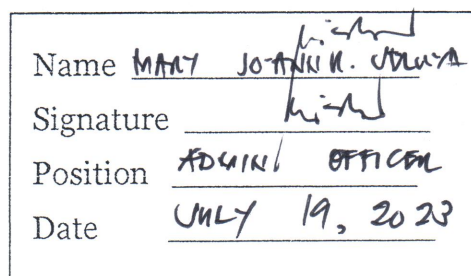 Name MARY JO-ANN R.
Signature
Position ADMIN/ OFFICER
Date JULY 19, 2023